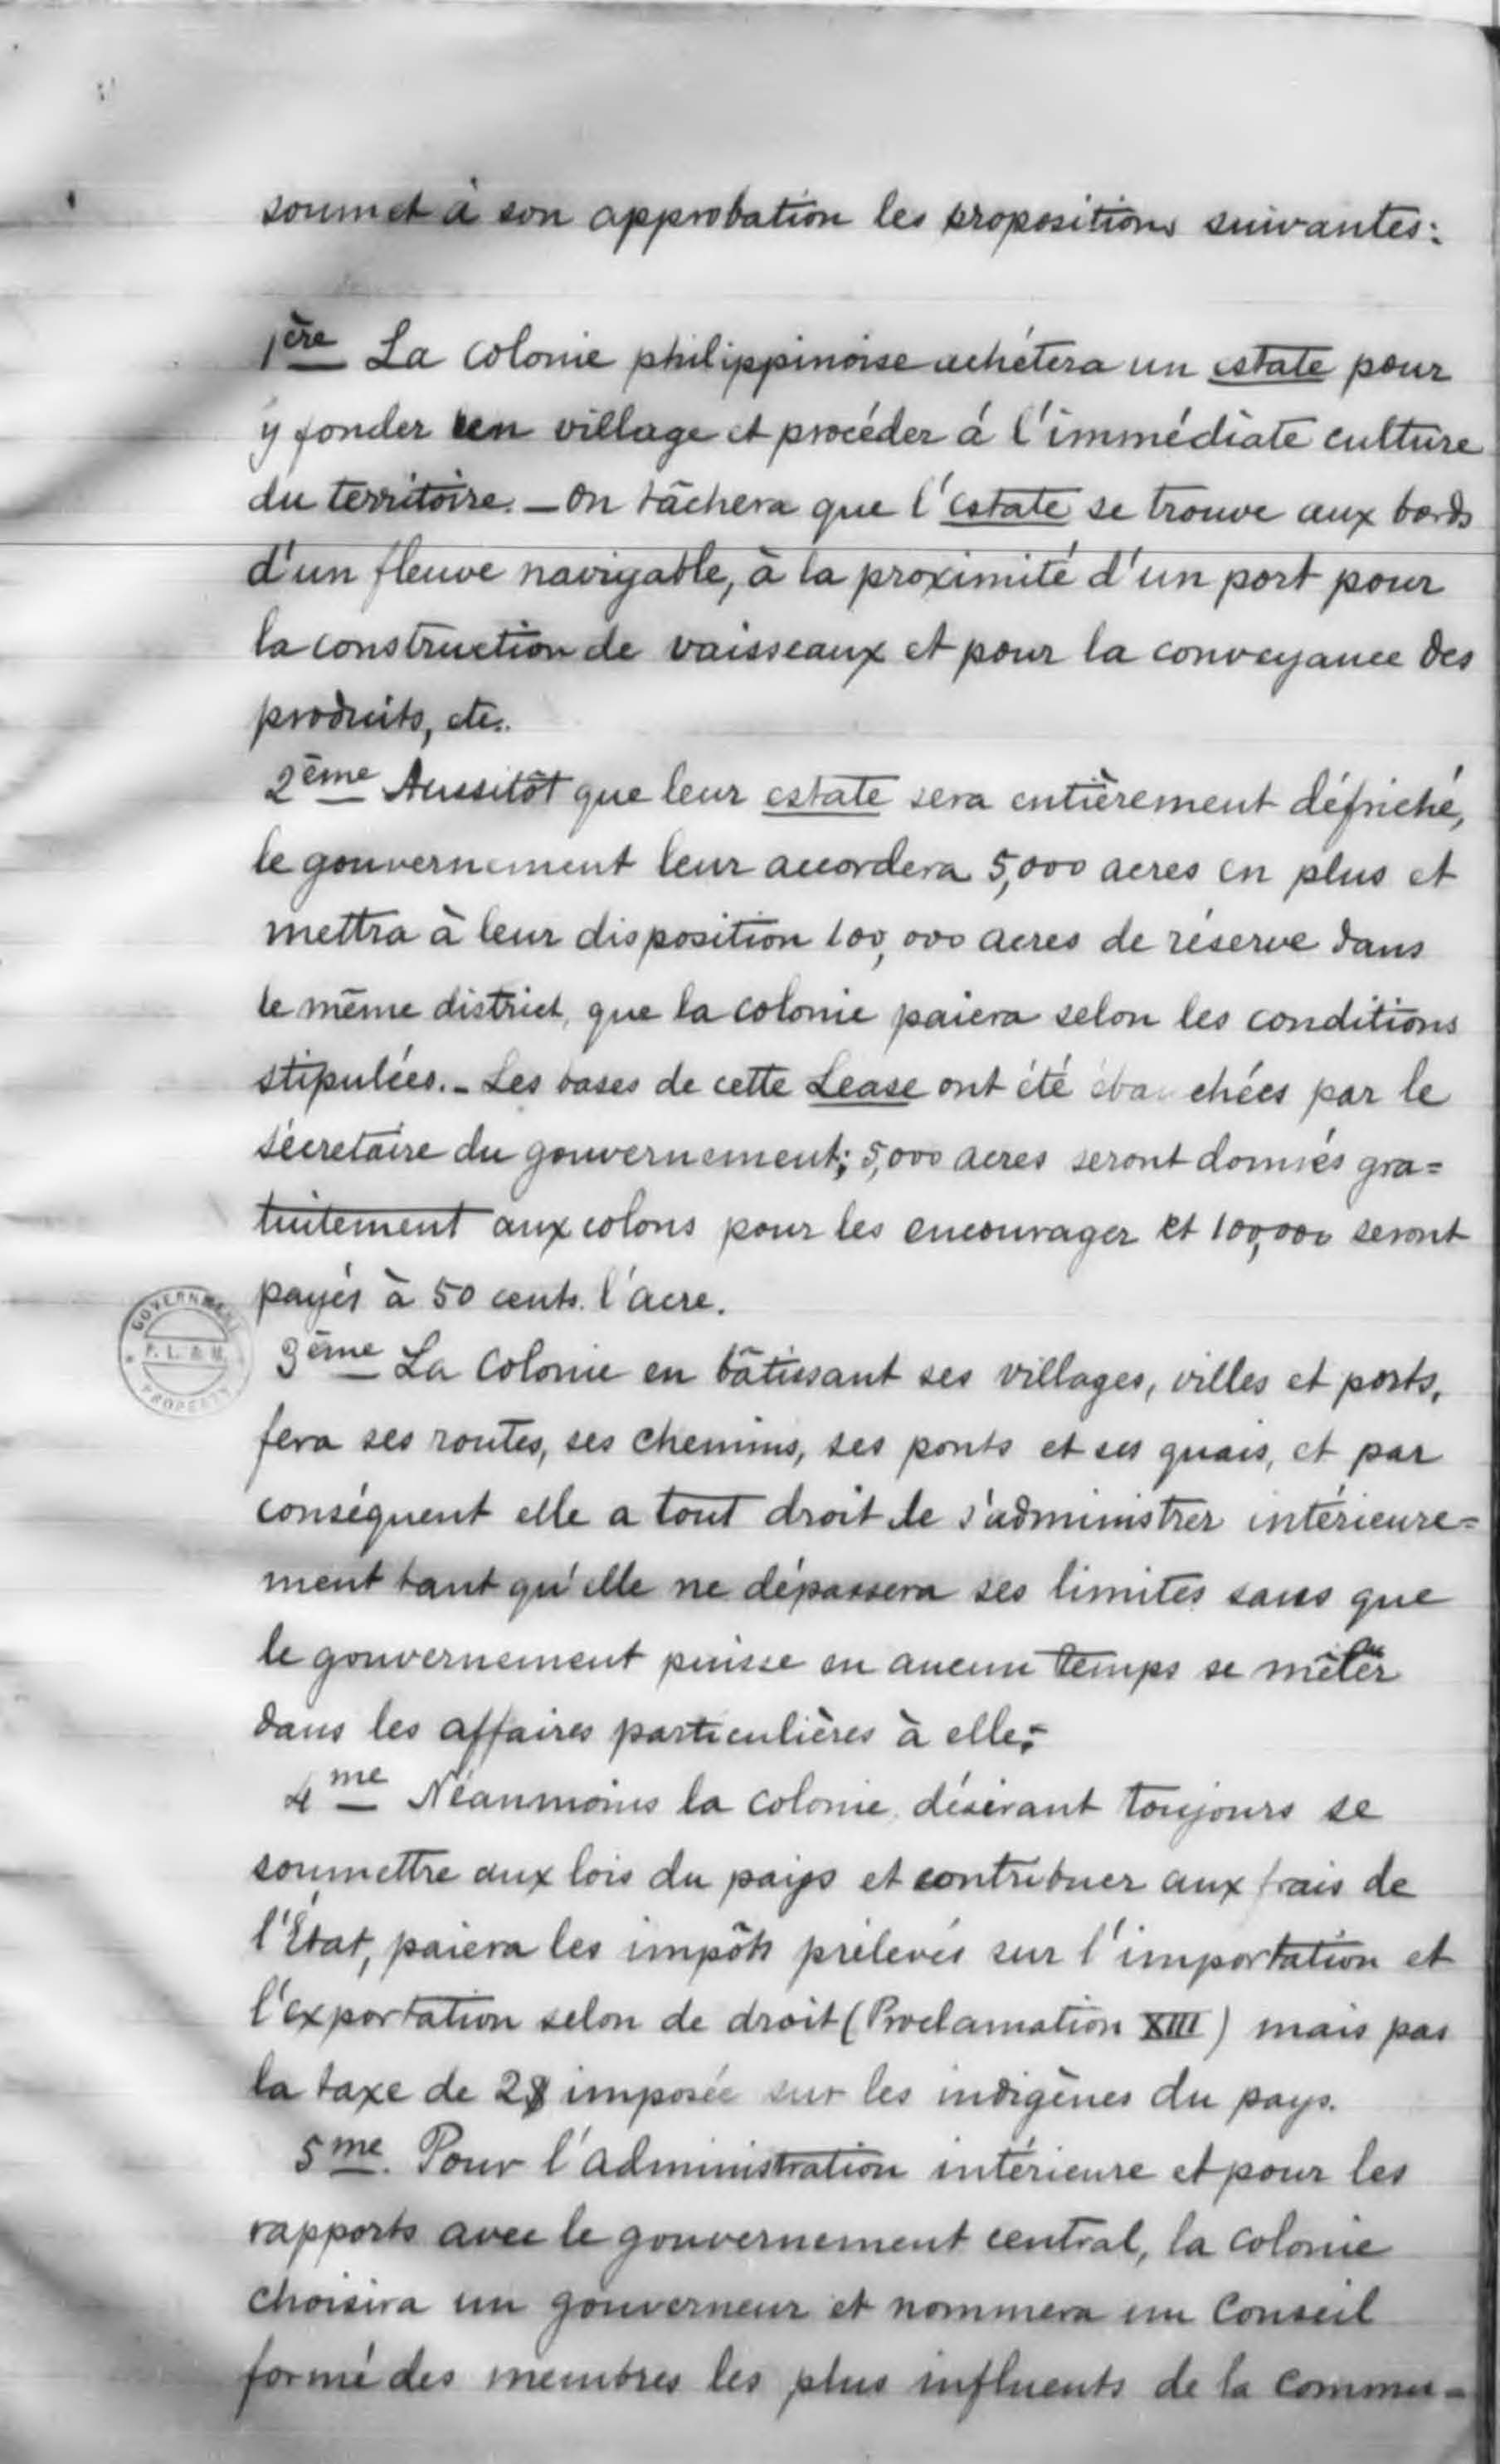 soumet à son approbation les propositions suivantes:
1ère La colonie philippinoise achétera un estate pour
y fonder un village et procéder á l'immédiate culture
du territoire. — On tâchera que l'estate se trouve aux bords
d'un fleuve navigable, à la proximité d'un port pour
la construction de vaisseaux et pour la conveyance des
produits, etc.
2ème Aussitôt que leur estate sera entièrement défriché,
le gouvernement leur accordera 5,000 acres en plus et
mettra à leur disposition 100,000 acres de réserve dans
le même district, que la colonie paiera selon les conditions
stipulées. - Les bases de cette Lease ont été ébauchées par le
sécretaire du gouvernement; 5,000 acres seront donnés gra=
tuitement aux colons pour les encourager et 100,000 seront
payés à 50 cents. l'acre.
GOVERNMENT
P. L. & M.
PROPERTY
3ème La Colonie en bâtissant ses villages, villes et ports,
fera ses routes, ses chemins, ses ponts et ses quais, et par
conséquent elle a tout droit de s'administrer intérieure=
ment tant qu'elle ne dépassera ses limites sans que
le gouvernement puisse en aucun temps se mêler
dans les affaires particulières à elle;-
4me Néanmoins la colonie, désirant toujours se
soumettre aux lois du pays et contribuer aux frais de
l'État, paiera les impôts prélevés sur l'importation et
l'exportation selon de droit (Proclamation XIII) mais pas
la taxe de 2$ imposée sur les indigènes du pays.
5me. Pour l'administration intérieure et pour les
rapports avec le gouvernement central, la colonie
choisira un gouverneur et nommera un Conseil
formé des membres les plus influents de la commu=